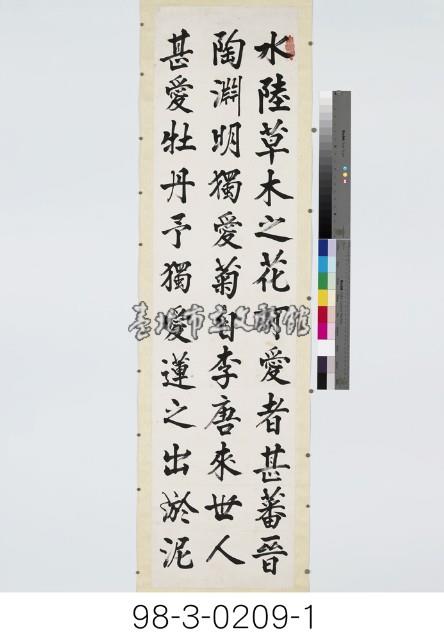 水陸草木之花可愛者甚蕃晉
陶淵明獨愛菊自李唐來世人
甚愛牡丹予獨愛蓮之出淤泥
臺北市立文獻館
98-3-0209-1